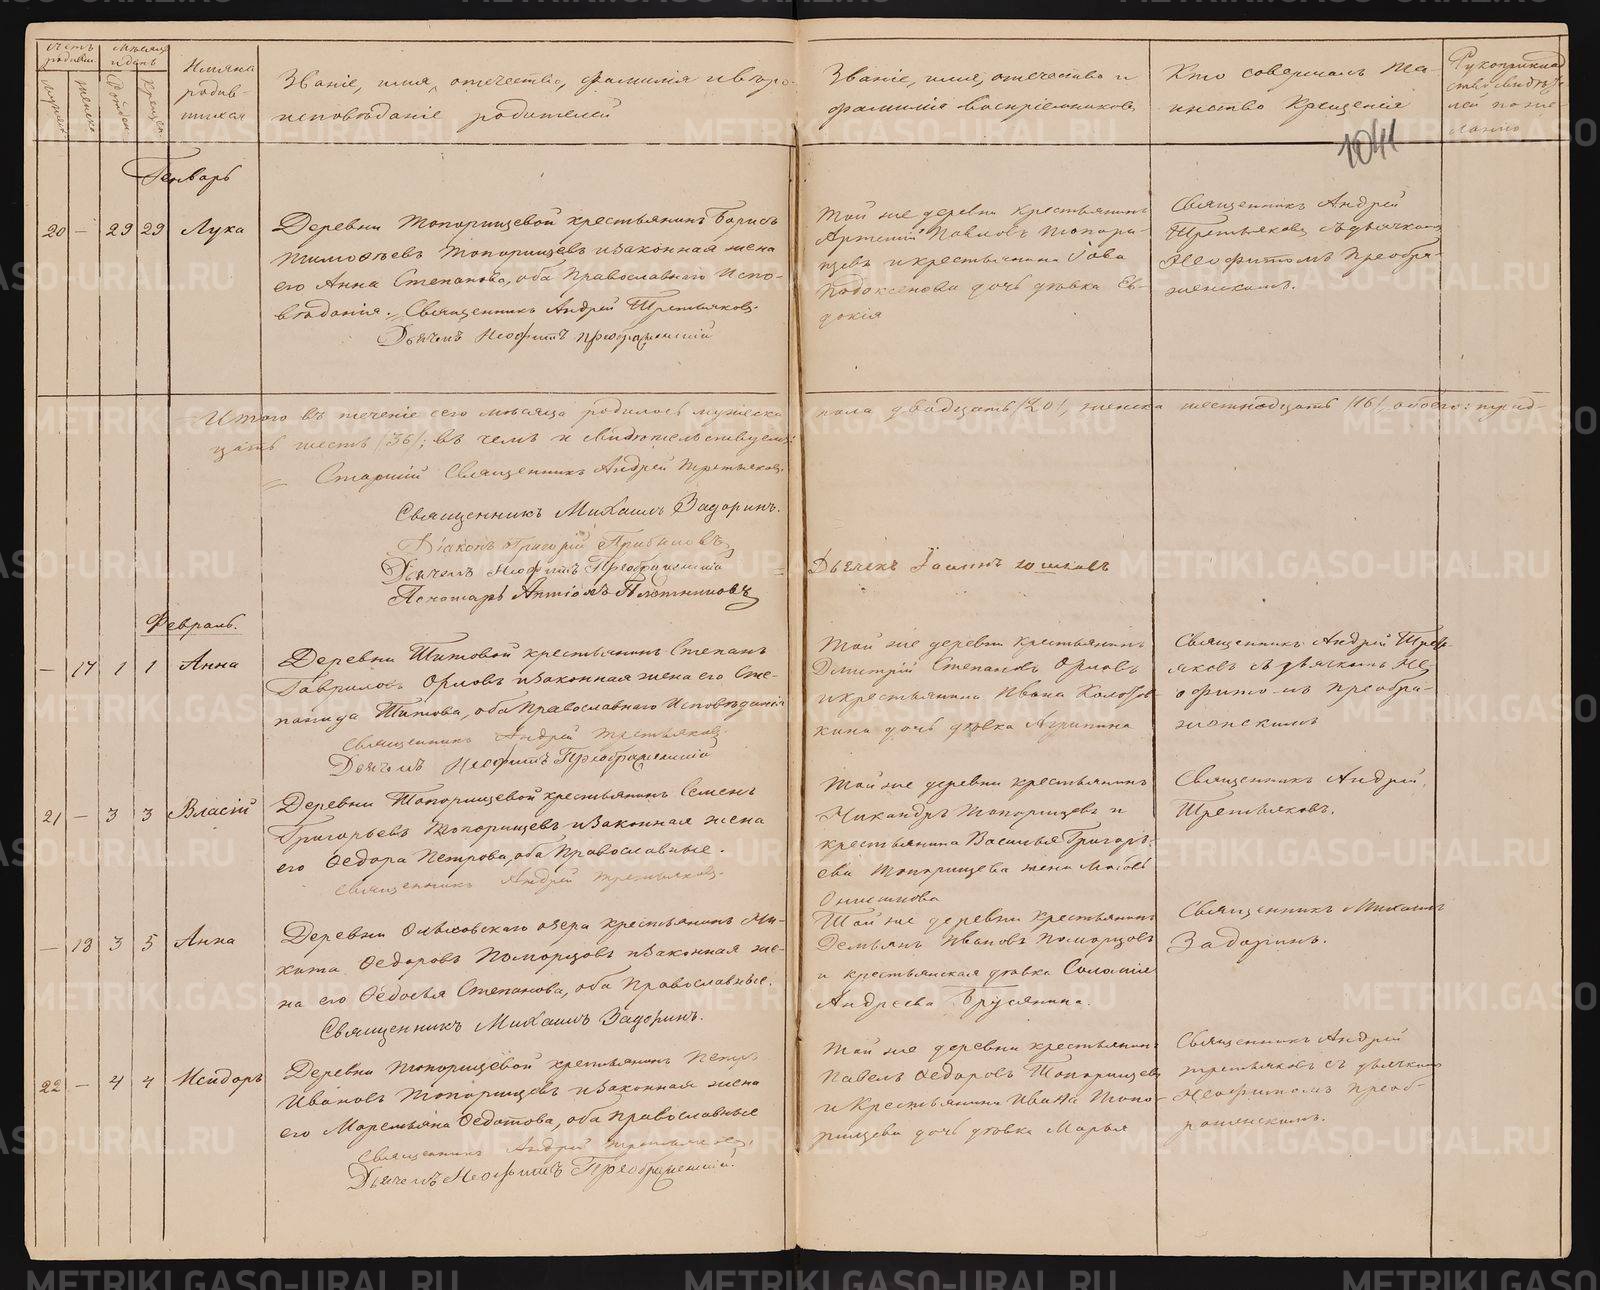 Счетъ родивш.
Мѣсяцъ и день
мужеск
женска
Рожден.
Крещен.
Имяна родив-
шихся
Званіе, имя, отечество, фамилія и вѣро-
исповѣданіе родителей
Званіе, имя, отечество и
фамилія воспріемниковъ
Кто совершалъ Та-
инство Крещенія
Рукоприклад
ство свидѣте
лей по же
ланію
1041
Генварь
20 — 29 29 Лука
Деревни Топорищевой крестьянинъ Борисъ
Тимофеевъ Топорищевъ и законная жена
его Анна Степанова, оба Православнаго Испо-
вѣданія. Священникъ Андрей Третьяковъ.
Дьячекъ Неофитъ Преображенскій
Той же деревни крестьянинъ
Артемій Павловъ Топори-
щевъ и крестьянина Іова
дочь дѣвка Ев-
докія
Священникъ Андрей
Третьяковъ съ дьячкомъ
Неофитомъ Преобра-
женскимъ.
Итого въ теченіе сего мѣсяца родилось мужеска
пола двадцать /20/, женска шестнадцать /16/, обоего: трид-
цать шесть /36/; въ чемъ и свидѣтельствуемъ:
Старшій Священникъ Андрей Третьяковъ.
Священникъ Михаилъ Задоринъ.
Діаконъ Григорій Прибыловъ
Дьячекъ Неофитъ Преображенскій
Дьячекъ Іоаннъ Юшковъ
Пономарь Антіохъ Плотниковъ
Февраль.
— 17 1 1 Анна
Деревни Шитовой крестьянинъ Степанъ
Гавриловъ Орловъ и законная жена его Сте-
панида Титова, оба Православнаго Исповѣданія
Священникъ Андрей Третьяковъ.
Дьячекъ Неофитъ Преображенскій
Той же деревни крестьянинъ
Дмитрій Степановъ Орловъ
и крестьянина Ивана Колобов-
кина дочь дѣвка Агрипина
Священникъ Андрей Треть-
яковъ съ дьячкомъ Не-
офитомъ Преобра-
женскимъ
21 — 3 3 Власій
Деревни Топорищевой крестьянинъ Семенъ
Григорьевъ Топорищевъ и законная жена
его Федора Петрова, оба Православные.
Священникъ Андрей Третьяковъ.
Той же деревни крестьянинъ
Никандръ Топорищевъ и
крестьянина Василья Григорь-
ева Топорищева жена Любовь
Онисимова
Священникъ Андрей
Третьяковъ.
— 18 3 5 Анна
Деревни Ольховскаго озера крестьянинъ Ни-
кита Федоровъ Поморцовъ и законная же-
на его Федосья Степанова, оба Православные.
Священникъ Михаилъ Задоринъ.
Той же деревни крестьянинъ
Демьянъ Ивановъ Поморцовъ
и крестьянская дѣвка Соломія
Андреева Брусянина.
Священникъ Михаилъ
Задоринъ.
22 — 4 4 Исидоръ
Деревни Топорищевой крестьянинъ Петръ
Ивановъ Топорищевъ и законная жена
его Маремьяна Федотова, оба Православные
Священникъ Андрей Третьяковъ.
Дьячекъ Неофитъ Преображенскій.
Той же деревни крестьянинъ
Павелъ Федоровъ Топорищевъ
и крестьянина Ивана Топо-
рищева дочь дѣвка Марья
Священникъ Андрей
Третьяковъ съ дьячкомъ
Неофитомъ Преоб-
раженскимъ.
METRIKI.GASO-URAL.RU